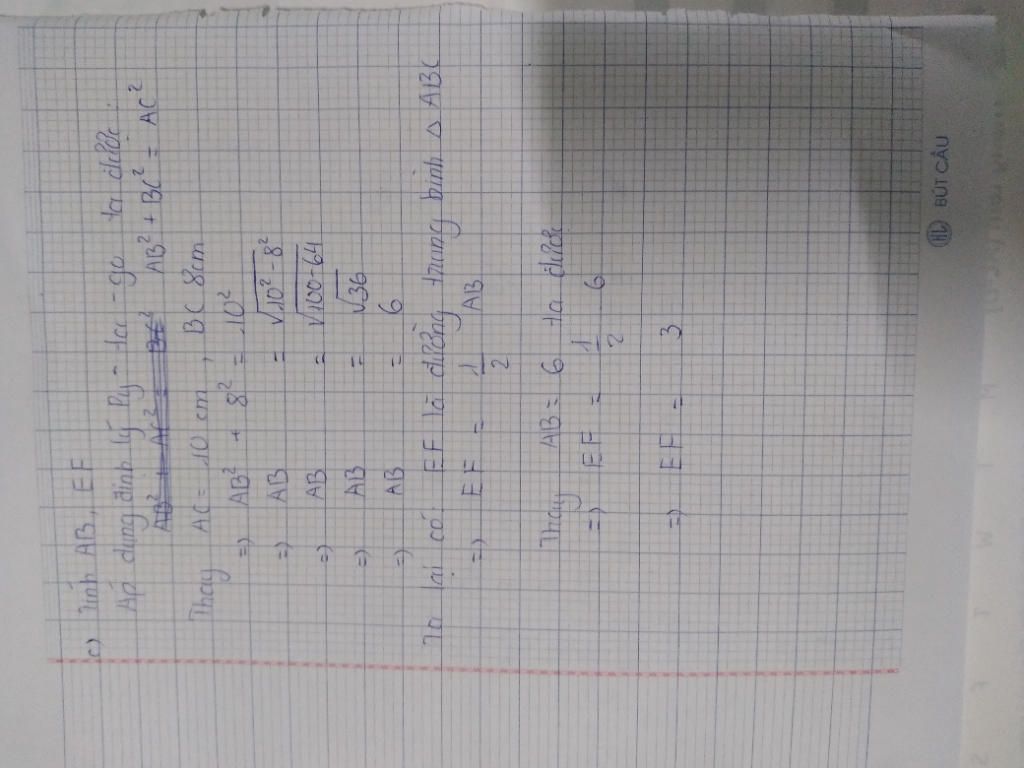 c) Tính AB, EF
Áp dụng định lý Py-ta-go ta được:
AB² + AC² = BC² AB² + BC² = AC²
Thay AC = 10 cm, BC 8cm
=) AB² + 8² = 10²
=) AB = √10² - 8²
=) AB = √100-64
=) AB = √36
=) AB = 6
Ta lại có: EF là đường trung bình △ ABC
=) EF = 1/2 AB
Thay AB = 6 ta được
=) EF = 1/2 6
=) EF = 3
HL BÚT CÂU